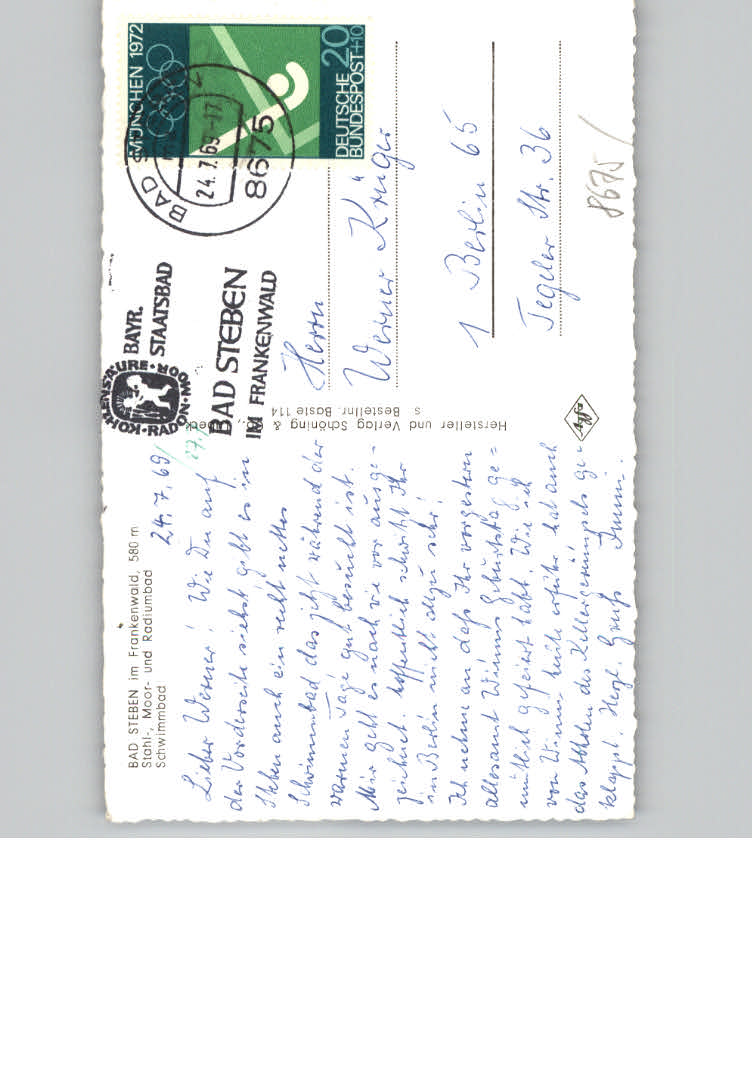 BAD STEBEN im Frankenwald, 580 m
Stahl-, Moor- und Radiumbad
Schwimmbad
24.7.69
Lieber Werner! Wie Du auf
der Vorderseite siehst gibt es in
Steben auch ein recht nettes
Schwimmbad das jetzt während der
warmen Tage gut besucht ist.
Mir geht es nach wie vor ausge-
zeichnet. Hoffentlich schwitzt Ihr
in Berlin nicht allzu sehr!
Ich nehme an daß Ihr vorgestern
allesamt Geburtstag ge=
mütlich gefeiert habt. Wie ich
von heute erfuhr hat auch
das Abholen des Kellergerümpels ge-
klappt. Herzl. Gruß
Hersteller und Verlag Schöning &
s Bestellnr. Baste 114
Agfa
KOHLENSÄURE·MOOR·RADON·
BAYR.
STAATSBAD
BAD STEBEN
IM FRANKENWALD
BAD
24.7.69-17
8675
MÜNCHEN 1972
20+10
DEUTSCHE
BUNDESPOST
Herrn
Werner Krüger
1 Berlin 65
Tegeler Str. 36
8675/